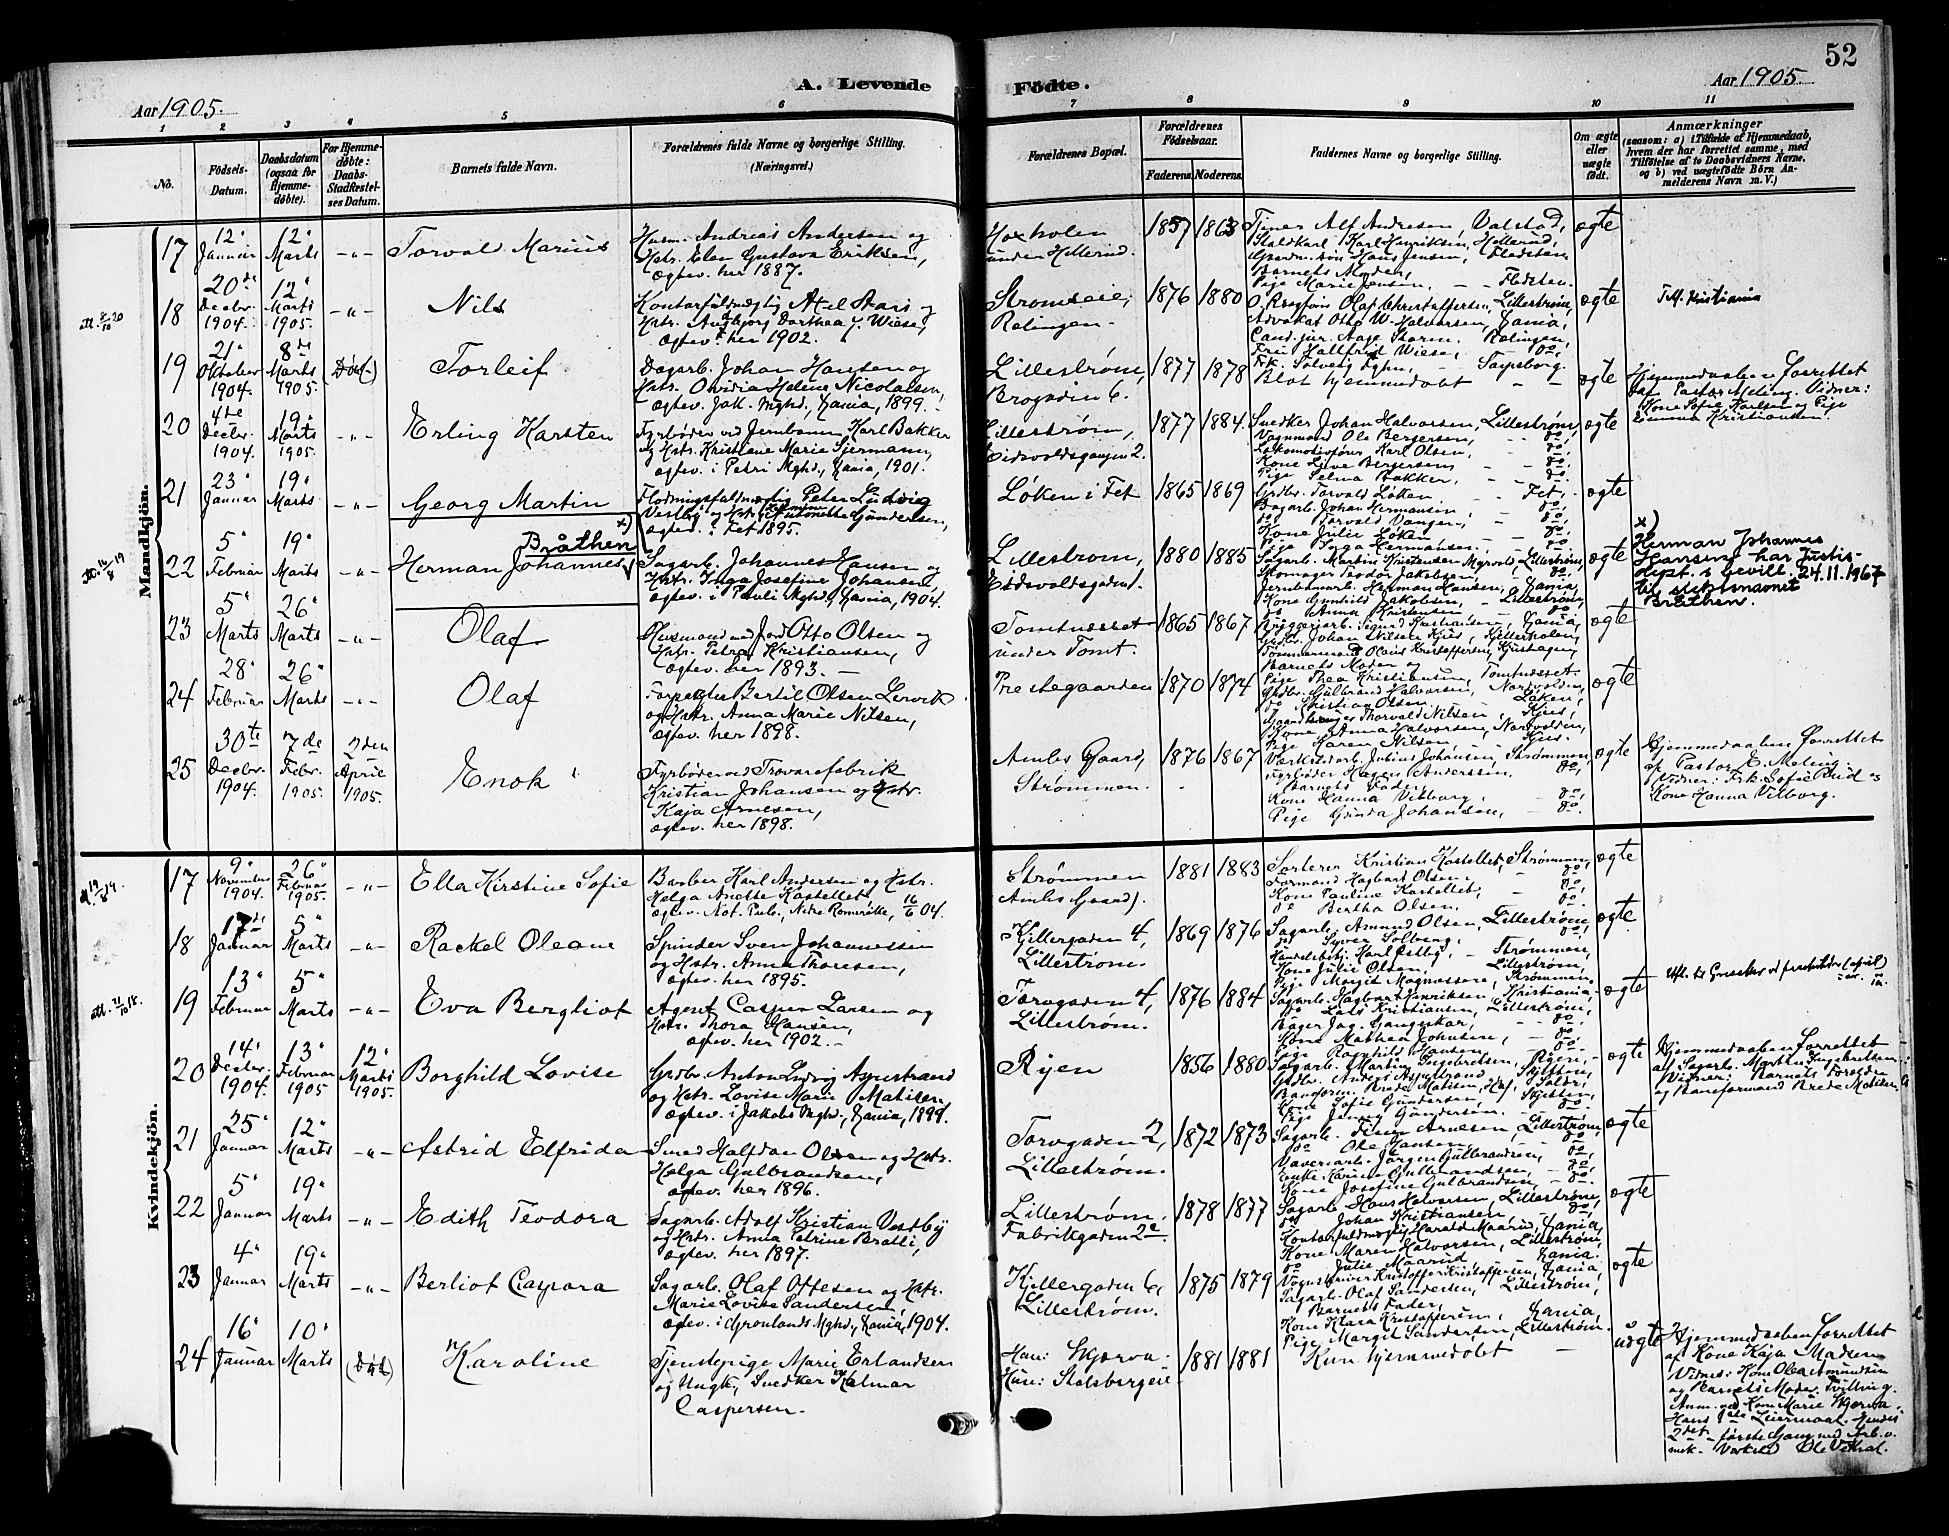 52
Aar 1905.
A. Levende
Fødte.
Aar 1905.
1 2 3 4 5 6 7 8 9 10 11
No.
Fødsels-
Datum.
Daabsdatum
(ogsaa for
Hjemme-
døbte).
For Hjemme-
døbte:
Daabs-
Stadfæstel-
ses Datum.
Barnets fulde Navn.
Forældrenes fulde Navne og borgerlige Stilling.
(Næringsvei.)
Forældrenes Bopæl.
Forældrenes
Fødselsaar.
Faderens. Moderens.
Faddernes Navne og borgerlige Stilling.
Om ægte
eller
uægte
født.
Anmærkninger
(saasom: a) i Tilfælde af Hjemmedaab,
hvem der har forrettet samme, med
Tilføielse af to Daabsvidners Navne,
og b) ved uægtefødte Børn An-
melderens Navn m. V.)
Mandkjön.
17
12'
Januar
12'
Marts
-"-
Torvald Marius
Husm. Andreas Andersen og
Hstr. Elen Gustava Eriksen,
ægtev. her 1887.
under Hellerud.
1857 1863
Alf Andresen, Valstad,
Staldkarl Karl Henriksen, Hellerud,
Hans Jensen, Fladsten
Barnets Moder,
Pige Marie Jensen, - - Fladsten.
ægte
att. 2/10 20
18
20de
Decbr.
1904.
12'
Marts
1905.
-"-
Nils
Kontorfuldmægtig Axel Aars og
Hstr. Dorthea J. Wiese,
ægtev. her 1902.
Strømseie,
Rælingen.
1876 1880
Olaf Christoffersen, Lillestrøm,
Advokat Otto W. Halvorsen, Kania,
Cand. jur. Aage Storm. Rælingen,
Fru Hallfrid Wiese, do,
Frk. Solveig - Sarpsborg.
ægte
Kristiania
19
21'
Oktober
1904.
8de
Marts
1905.
(Død.)
Torleif
Dagarb. Johan Hansen og
Hstr. Ovidia Helene Nicolaisen,
ægtev. Jak. Mghd., Kania, 1899.
Lillestrøm,
Brogaden 6.
1877 1878
Blot hjemmedøbt - -
ægte
Hjemmedaaben forrettet
af Pastor Meling. Vidner:
Kone Sofie Karlsen og Pige
Emma Kristiansen.
20
4de
Decbr.
1904.
19'
Marts
1905.
-"-
Erling Karsten
Fyrbøder ved Jernbanen Karl Bakker
og Hstr. Kristiane Marie Sjermann,
ægtev. i Petri Mghd., Kania, 1901.
Lillestrøm,
Eidsvoldsgaden 2.
1877 1884.
Snedker Johan Halvorsen, Lillestrøm,
Vognmand Ole Bergersen, - do,
Lokomotivfører Karl Olsen, do,
Kone Bergersen, - - do,
Pige Selma Bakker, - do.
ægte
21
23'
Januar
19'
Marts
-"-
Georg Martin
Flodningsfuldmægtig Peter Ludvig
Vestby og Hstr. Antonette Gundersen,
ægtev. i Fet 1895.
Løken i Fet
1865 1869
Grdbr. Torvald Løken - Fet,
Bagarb. Johan Hermansen, do,
do Torvald Vangen, - do,
Kone Julie Løken - do,
Pige Inga Hermansen, - do.
ægte
att. 16/8 19
22
5'
Februar
19'
Marts
-"-
Bråthen x)
Herman Johannes
Sagarb. Johannes Hansen og
Hstr. Inga Josefine Johansen,
ægtev. i Pauli Mghd., Kania, 1904.
Lillestrøm,
Eidsvoldsgaden 1.
1880 1885
Sagarb. Martin Kristensen Myrvold, Lillestrøm,
Skomager Teodor Jakobsen, - do,
Jernbanearb. Herman Hansen, Kania,
Kone Gunhild Jakobsen, - Lillestrøm,
do Anna Kristensen do.
ægte
x)
Herman Johannes
Hansen har Justis-
dept.s bevill. 24.11.1967
til slektsnavnet
Bråthen.
23
5'
Marts
26'
Marts
-"-
Olaf
Husmand med Jord Otto Olsen og
Hstr. Petra Kristiansen,
ægtev. her 1893. -
Tomtnesset
under Tomt.
1865 1867
Bryggeriarb. Sigurd Kristiansen, Kania,
Grdbr. Johan Nilsen Kjus, Kjellerholen,
Tømmermand Olaus Kristoffersen, Kjushagen,
Barnets Moder og
Pige Thea Kristiansen, Tomtnesset.
ægte
24
28'
Februar
26'
Marts
-"-
Olaf
Forpagter Bertil Olsen Lervik
og Hstr. Anna Marie Nilsen,
ægtev. her 1898.
Prestegaarden
1870 1874
Grdbr. Gulbrand Halvorsen, Nordvolden,
do Kristian Olsen, Løken,
Thorvald Nilsen, Kjus,
Kone Anna Halvorsen, Nordvolden,
Pige Karen Nilsen Kjus.
ægte
25
30te
Decbr.
1904.
7de
Febr.
1905.
2den
April
1905.
Enok
Fyrbøder ved Trævarefabrik
Kristian Johansen og Hstr.
Kaja Arnesen,
ægtev. her 1898.
Amles Gaard,
Strømmen.
1876 1867
Verkstedsarb. Julius Johansen, Strømmen,
Fyrbøder Hagen Anderssen, do,
Barnets Fader,
Kone Hanna Vilborg, - do,
Pige Gunda Johansen, - do.
ægte
Hjemmedaaben forrettet
af Pastor E. Meling.
Vidner: Frk. Sofie Brid og
Kone Hanna Vilborg.
Kvindekjön.
17
9'
November
1904.
26'
Februar
1905.
-"-
Ella Kirstine Sofie
Barber Karl Andersen og Hstr.
Helga Anette Kastellet,
ægtev. Not. Publ., Nedre Romerike, 16/6 04.
Strømmen
(Amles Gaard).
1881 1883
Sorterer Kristian Kastellet, Strømmen,
Formand Hagbart Olsen, do,
Kone Pauline Kastellet, - do,
do Bertha Olsen, do.
ægte
18
17de
Januar
5'
Marts
-"-
Rackel Oleane
Spinder Sven Johannessen
og Hstr. Anna Thoresen,
ægtev. her 1895.
Kjellergaden 4,
Lillestrøm.
1869 1876
Sagarb. Amund Olsen, Lillestrøm,
do Syver Solberg, do,
Handelsbetj. Karl Østby, - Strømmen,
Kone Julie Olsen, Lillestrøm,
Pige Margit Magnussen, Strømmen.
ægte
att. 21/10 18.
19
13'
Februar
5'
Marts
-"-
Eva Bergliot
Agent Casper Larsen og
Hstr. Thora Hansen,
ægtev. her 1902. -
Torvgaden 4,
Lillestrøm.
1876 1884
Sagarb. Hagbart Henriksen, Kristiania,
do Lars Kristiansen, Lillestrøm,
Bager Jag. Gangeskar, - do,
Kone Mathea Johnsen, - do,
Pige Ragnhild Hansen do.
ægte
20
14'
Decbr.
1904.
13'
Februar
1905
12'
Marts
1905.
Borghild Lovise
Grdbr. Anton Ludvig Agnstrand
og Hstr. Lovise Marie Matisen,
ægtev. i Jakobs Mghd., Kania, 1899.
Ryen
1856 1880
Sagarb. Martin Ingebretsen, Ryen,
Grdbr. Anders Agnstrand Skjetten,
Baneform. Brede Matisen,
Kone Sofie Gundersen, - Skjetten,
Pige Jenny Gundersen. - do.
ægte
Hjemmedaaben forrettet
af Sagarb. Martin Ingebretsen.
Vidner: Barnets Forældre
og Baneformand Brede Matisen.
21
25'
Januar
12'
Marts
-"-
Astrid Elfrida
Smed Halfdan Olsen og Hstr.
Helga Gulbrandsen,
ægtev. her 1896.
Torvgaden 2,
Lillestrøm.
1872 1873
Sagarb. Arnesen, Lillestrøm,
do Ole Hansen, do,
Væveriarb. Jørgen Gulbrandsen, - do,
Enke Karine Gulbrandsen, - do,
Kone Josefine Gulbrandsen, - do.
ægte
22
5'
Januar
19'
Marts
-"-
Edith Teodora
Sagarb. Adolf Kristian Vestby
og Hstr. Anna Petrine Bratli,
ægtev. her 1897.
Lillestrøm,
Fabrikgaden 2c.
1878 1877
Sagarb. Hans Halvorsen, Lillestrøm,
do Johan Kristiansen do,
Kontorfuldmægtig Harald Maarud, Kania,
Kone Maren Halvorsen, Lillestrøm,
do Julie Maarud Kania.
ægte
23
4'
Januar
19'
Marts
-"-
Berliot Caspara
Sagarb. Olaf Ottesen og Hstr.
Marie Lovise Sandersen,
ægtev. i Grønlands Mghd., Kania, 1904.
Kjellergaden 6,
Lillestrøm.
1875 1879
Vognskriver Kristoffer Kristoffersen, Kania,
Sagarb. Olaf Sandersen, Lillestrøm,
Barnets Fader,
Kone Klara Kristoffersen, Kania,
Pige Margit Sandersen, Lillestrøm.
ægte
24
16'
Januar
10'
Marts
(Død)
Karoline
Tjenstepige Marie Erlandsen
og Ungk., Snedker Helmar
Caspersen.
Skjærva
Stalsbergeie.
1881 1881
Kun hjemmedøbt -
uægte
Hjemmedaaben forrettet
af Kone Kaja Madsen
Vidner: Kone Olea Amundsen
og Barnets Moder. Tvilling.
Anm. ved Kone Marie Skjærva.
Hans 1ste Leiermaal. Hendes
2det - første Gang med Arb. v.
mek. Værksted Ole Vittral.